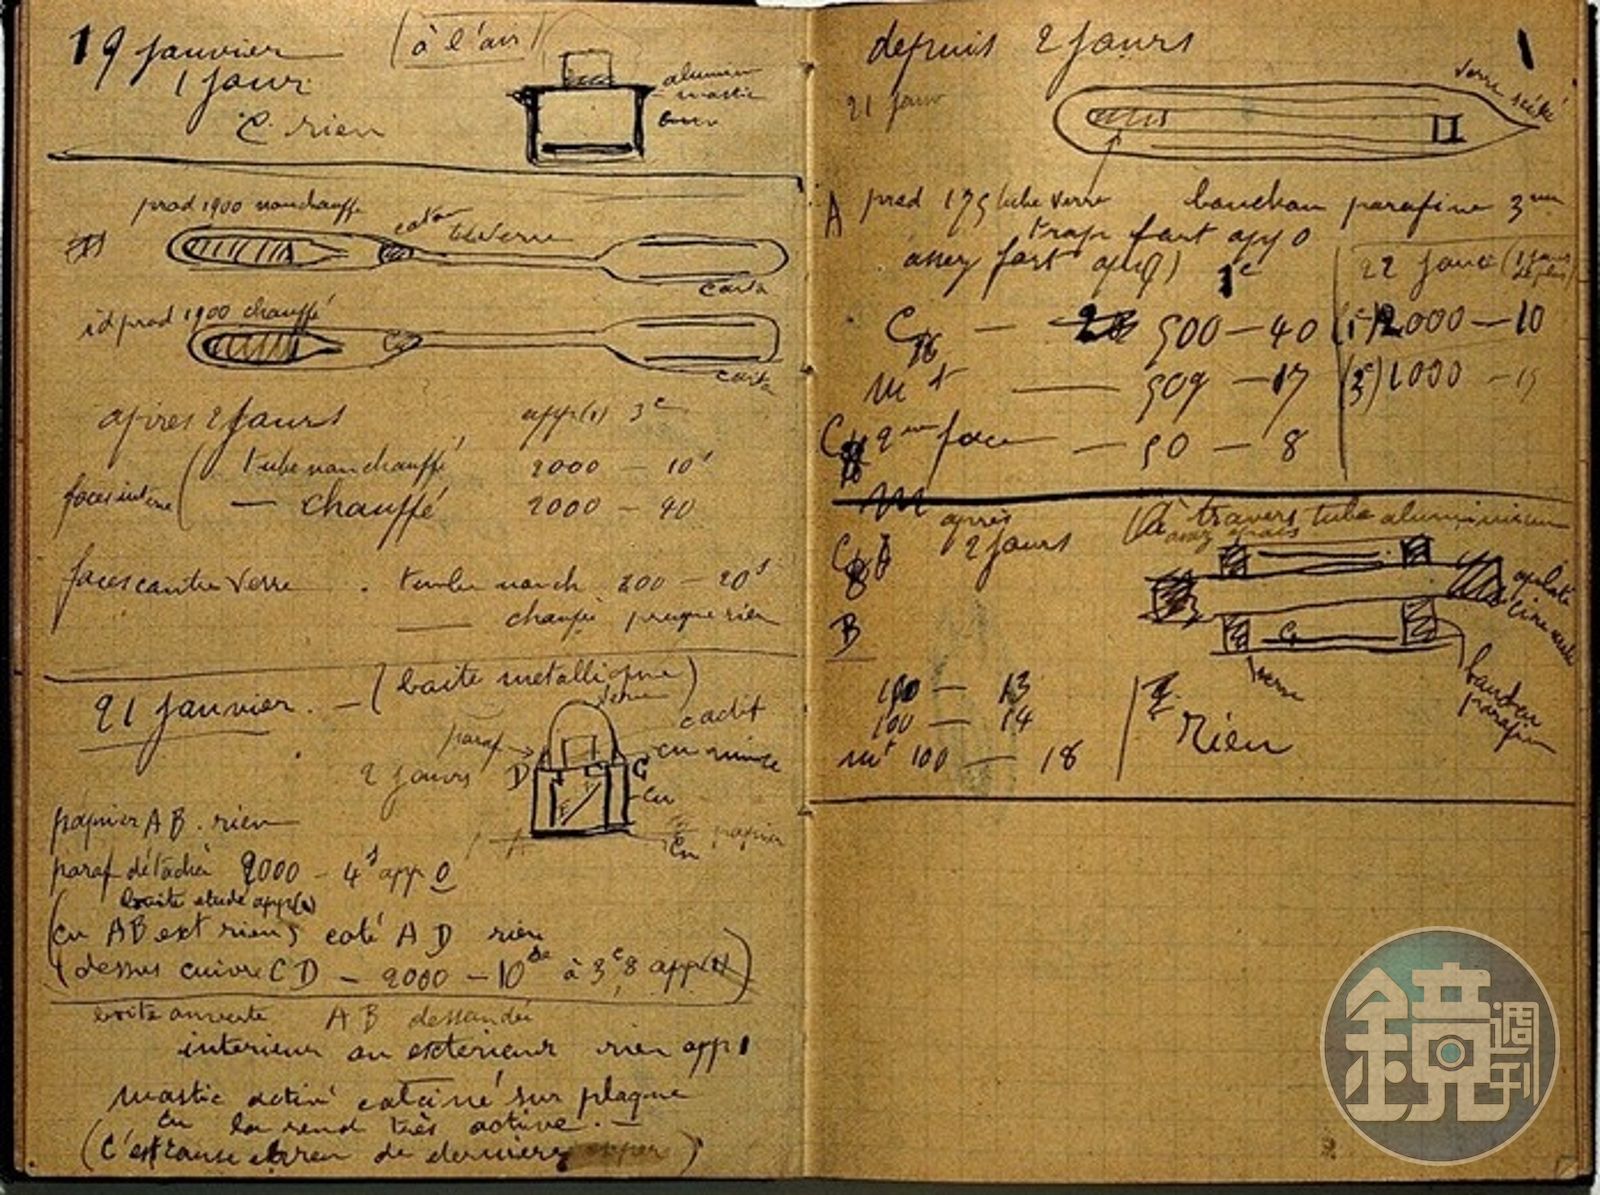 19 janvier (à l'air)
1 jour
C. rien
aluminium
mastic
prod 1900 non chauffé
tube verre
carta
id prod 1900 chauffé
C
carta
après 2 jours app(1) 3c
faces interne
tube non chauffé 2000 — 10s
— chauffé 2000 — 40
faces contre verre . tube non ch 200 — 20s
— chauffé presque rien
21 janvier. — (boite metallique)
verre
paraf
cu mince
2 jours D C
Cu
papier
Cu
papier AB. rien
paraf détaché 2000 — 4s app 0
boite etude app(1)
(cu AB ext rien, coté AD rien
(dessus cuivre CD — 2000 — 10 à 3c,8 app(1))
boite ouverte AB dessoudé
interieur ou exterieur rien app 1
mastic activé calciné sur plaque
cu la rend très active. —
(C'est cause erreur de dernière
depuis 2 jours 1
21 janv
verre scellé
A prod 175 tube verre bouchon parafine 3mm
trop fort app 0
assez fort app(1) 1c
22 janv (1 jour de plus)
C — 500 — 40 (1c) 2000 — 10
mt — 509 — 17 (3c) 1000 — 15
C 2me face — 50 — 8
m
après
2 jours
(à travers tube aluminium
assez épais
B
C
verre
bouchon
parafin
100 — 13
100 — 14
mt 100 — 18
Rien
鏡週刊